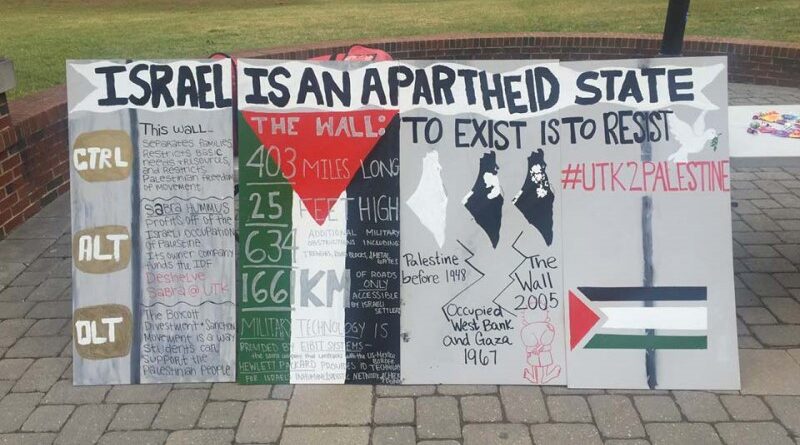 ISRAEL IS AN APARTHEID STATE
CTRL
ALT
DLT
This wall...
separates families,
Restricts basic
needs & resources,
and Restricts
Palestinian freedom
of movement.
Sabra Hummus
Profits off of the
Israeli occupation
of Palestine.
Its owner company
funds the IDF
Deshelve
Sabra @ UTK
The Boycott
Divestment + Sanction
Movement is a way
Students can
Support the
Palestinian People
THE WALL:
403 MILES LONG
25 FEET HIGH
634 ADDITIONAL MILITARY
OBSTRUCTIONS INCLUDING
TRENCHES, ROADBLOCKS, & METAL
GATES
166 KM OF ROADS
ONLY
ACCESSIBLE
BY ISRAELI
SETTLERS
MILITARY TECHNOLOGY IS
PROVIDED BY ELBIT SYSTEMS—
the same company that contracts with the US-Mexico
BORDER
HEWLETT PACKARD PROVIDES ID TECHNOLOGY
FOR ISRAEL'S INHUMANE
TO EXIST IS TO RESIST
#UTK2PALESTINE
Palestine
before 1948
Occupied
West Bank
and Gaza
1967
The
Wall
2005